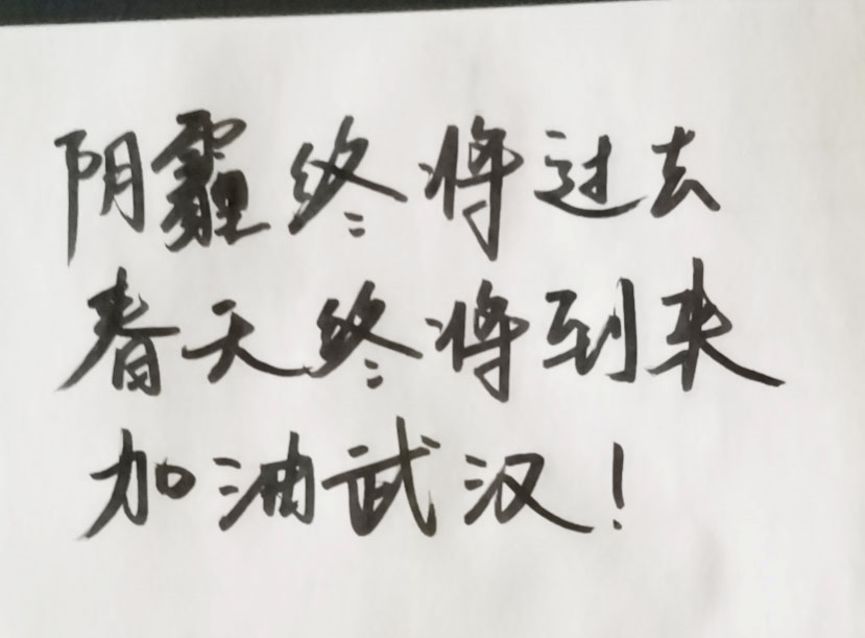 阴霾终将过去
春天终将到来
加油武汉!